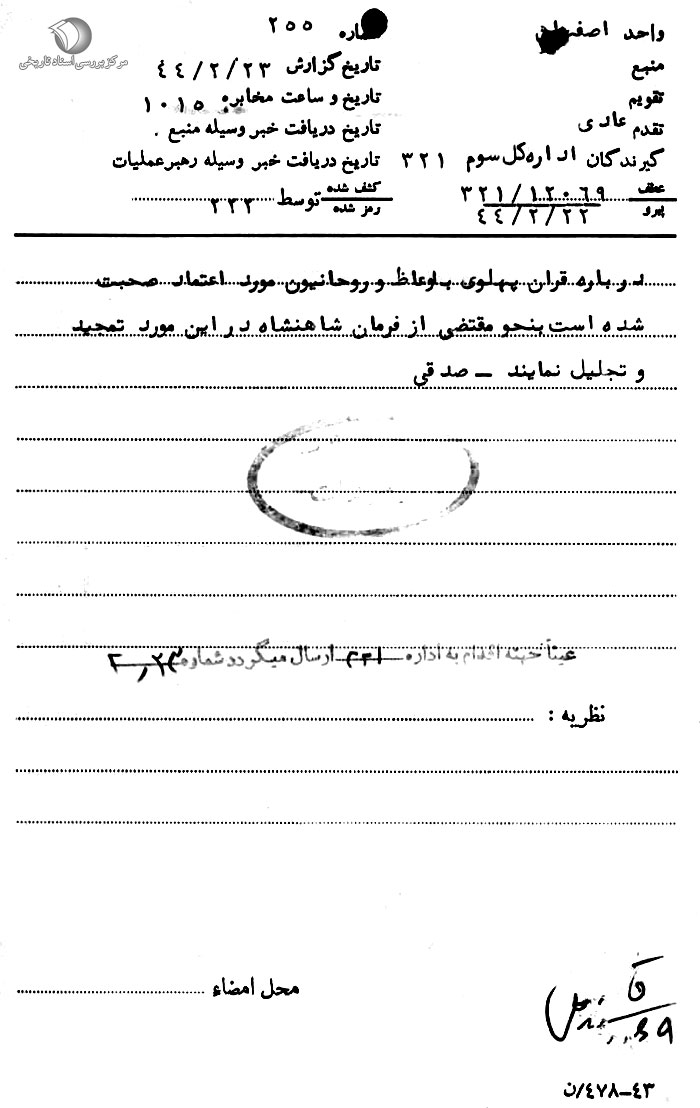 مرکز بررسی اسناد تاریخی
واحد اصفهان
شماره ۲۵۵
منبع
تاریخ گزارش ۴۴/۲/۲۳
تقویم
تاریخ و ساعت مخابره ۱۰۱۵
تقدم عادی
تاریخ دریافت خبر وسیله منبع .
گیرندگان اداره کل سوم ۳۲۱
تاریخ دریافت خبر وسیله رهبرعملیات
عطف ۳۲۱/۱۲۰۶۹
پیرو ۴۴/۲/۲۲
کشف شده
رمز شده توسط ۳۳۳
درباره قران پهلوی با وعاظ و روحانیون مورد اعتماد صحبت
شده است بنحو مقتضی از فرمان شاهنشاه در این مورد تمجید
و تجلیل نمایند – صدقی
عیناً جهته اقدام به اداره ۳۲۱ ارسال میگردد شماره
نظریه :
محل امضاء
۴۷۸-۴۳/ن